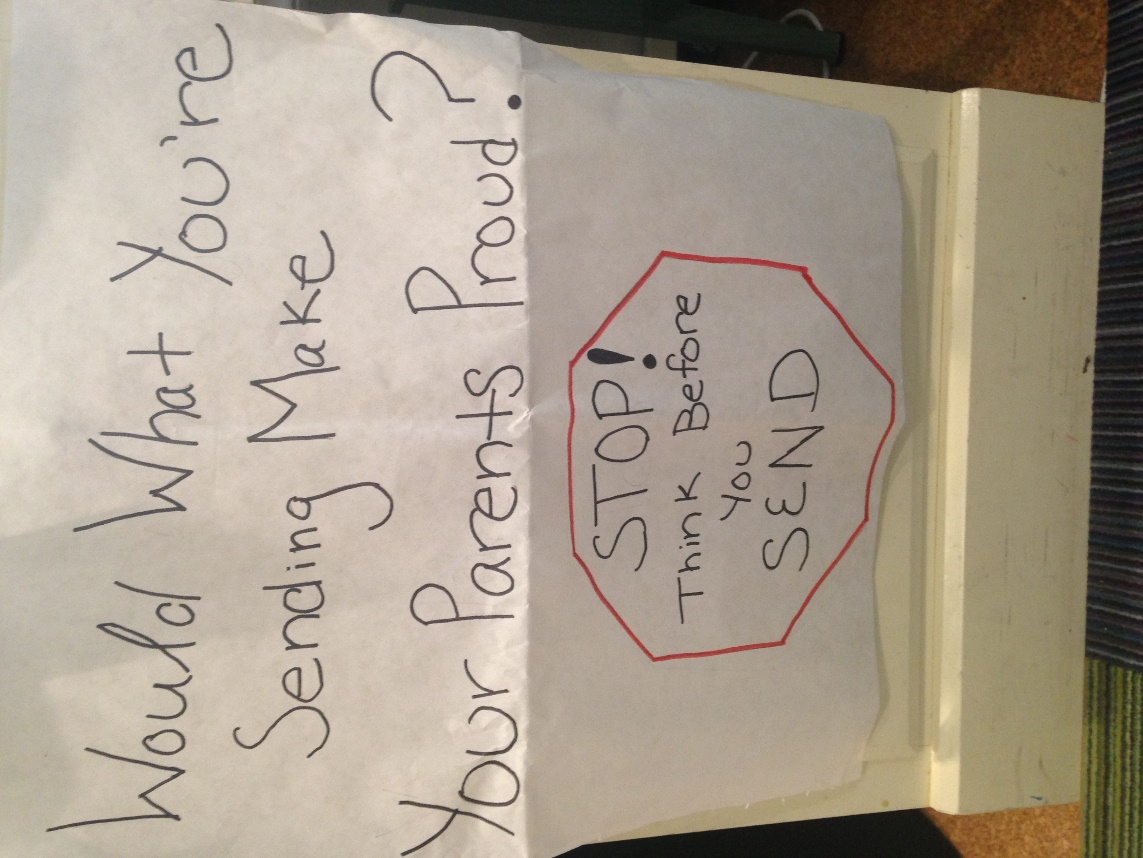 Would What You're
Sending Make
Your Parents Proud?
STOP!
Think Before
You
SEND